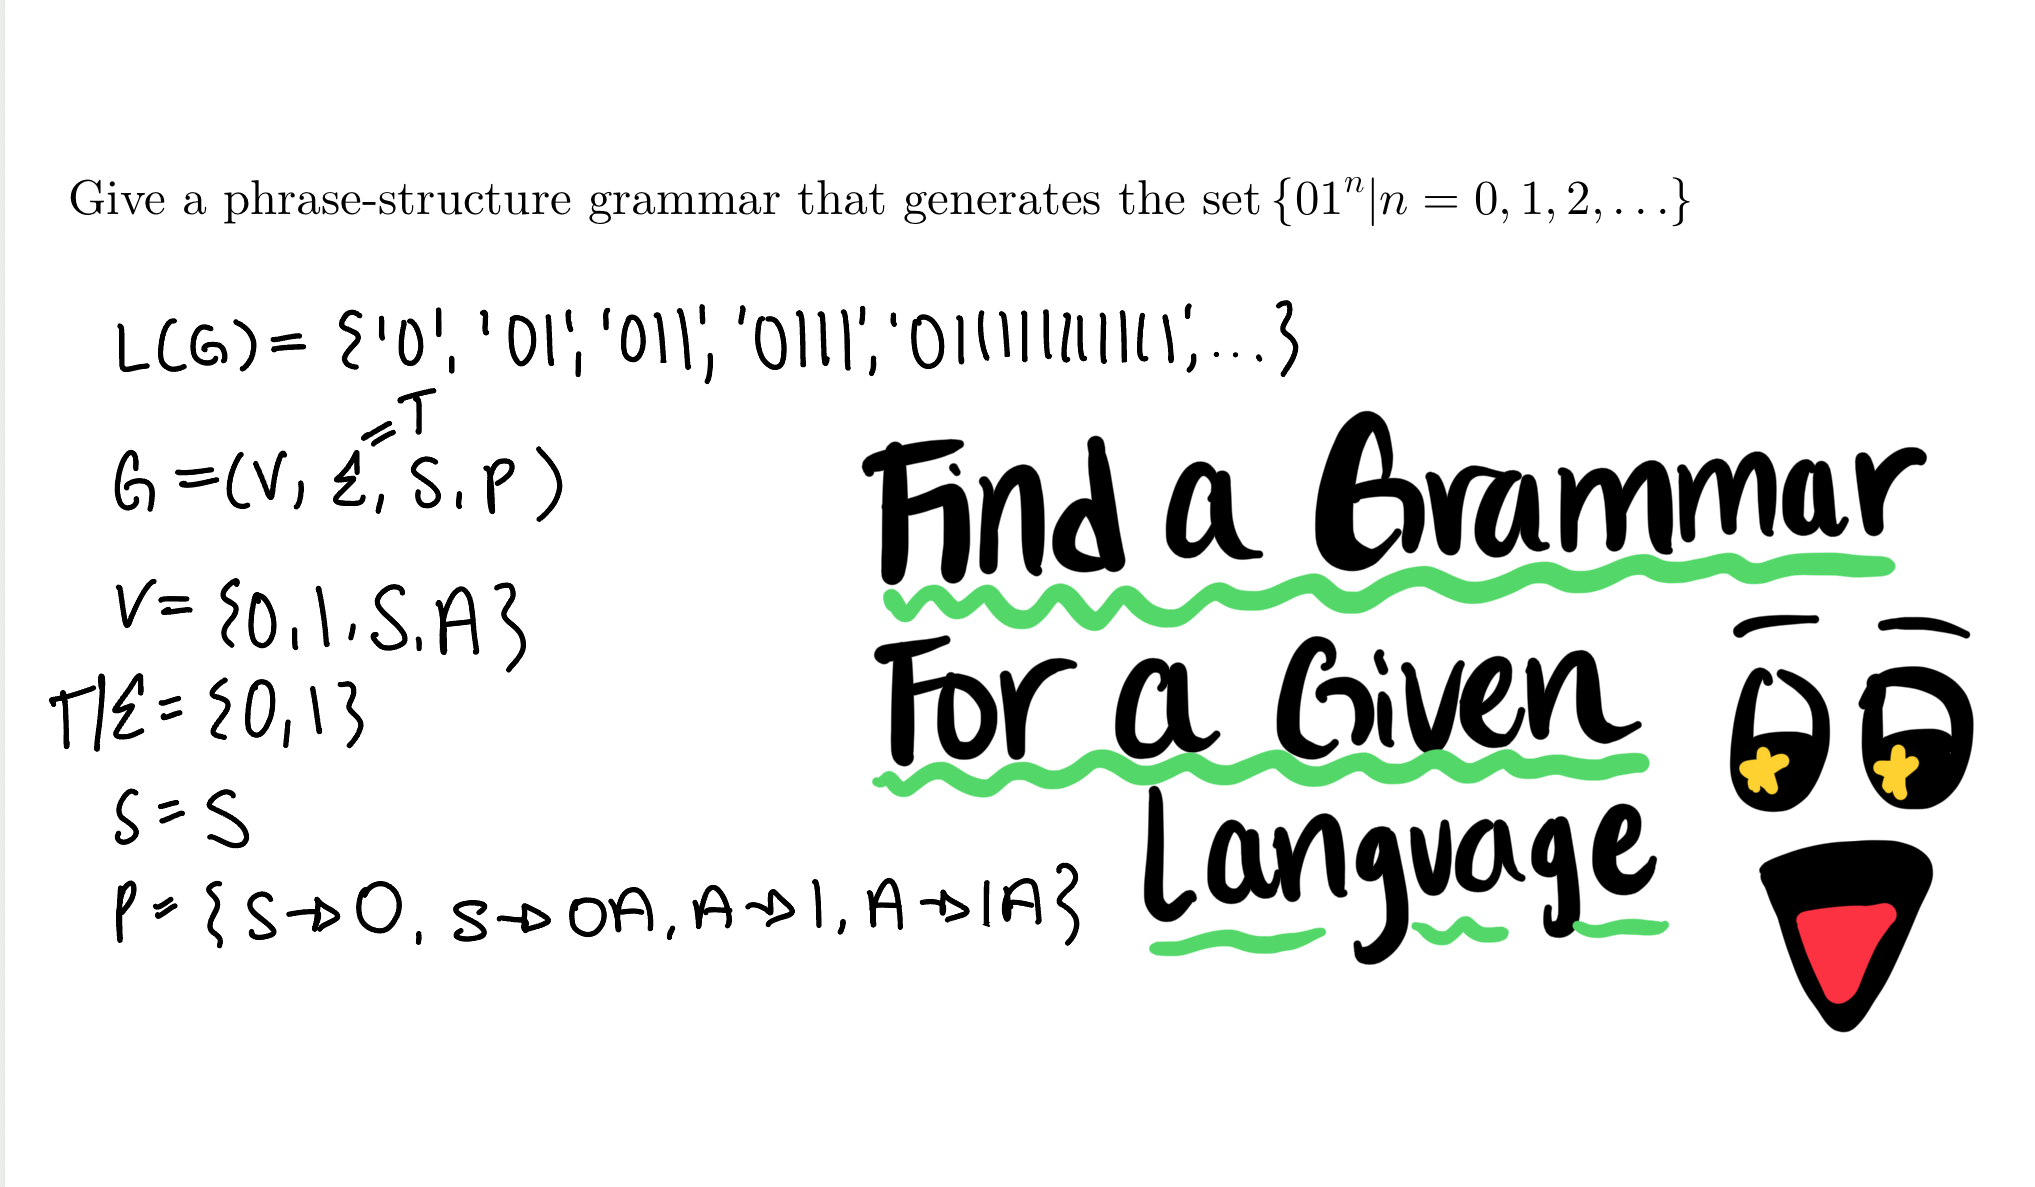 Give a phrase-structure grammar that generates the set {01ⁿ|n = 0, 1, 2, . . .}
L(G) = {'0', '01', '011', '0111', '01111111111111', ...}
= T
G = (V, Σ, S, P)
V = {0, 1, S, A}
T/Σ = {0, 1}
S = S
P = {S→0, S→0A, A→1, A→1A}
Find a Grammar
For a Given
Language